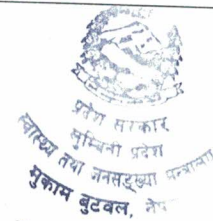 प्रदेश सरकार
लुम्बिनी प्रदेश
स्वास्थ्य तथा जनसङ्ख्या मन्त्रालय
मुकाम बुटवल, नेपाल